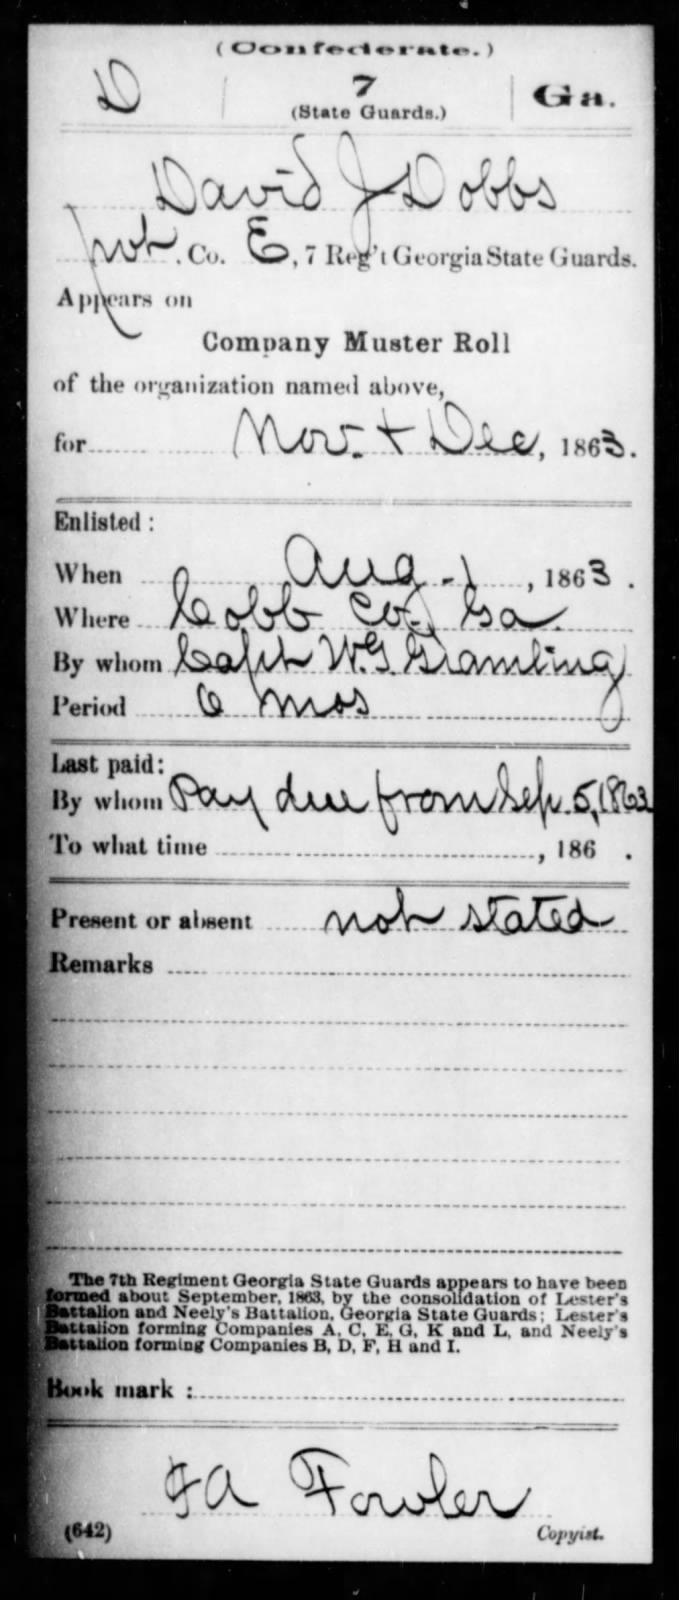 (Confederate.)
D 7 Ga.
(State Guards.)
David J Dobbs
Pvt. Co. E, 7 Reg't Georgia State Guards.
Appears on
Company Muster Roll
of the organization named above,
for Nov. + Dec, 1863.
Enlisted:
When Aug. 1, 1863.
Where Cobb Co., Ga.
By whom Capt W.G. Gramling
Period 6 mos
Last paid:
By whom Pay due from Sep. 5, 1863
To what time, 186 .
Present or absent not stated
Remarks
The 7th Regiment Georgia State Guards appears to have been
formed about September, 1863, by the consolidation of Lester's
Battalion and Neely's Battalion, Georgia State Guards; Lester's
Battalion forming Companies A, C, E, G, K and L, and Neely's
Battalion forming Companies B, D, F, H and I.
Book mark:
F A Fowler
(642) Copyist.